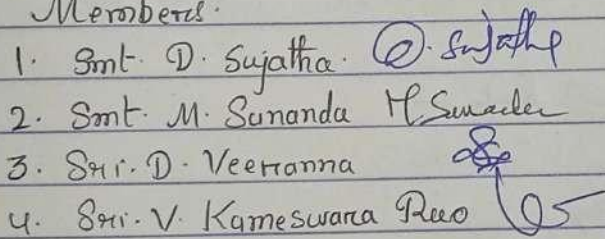 Members.
1. Smt. D. Sujatha. D. Sujatha
2. Smt. M. Sunanda M Sunanda
3. Sri. D. Veerranna
4. Sri. V. Kameswara Rao